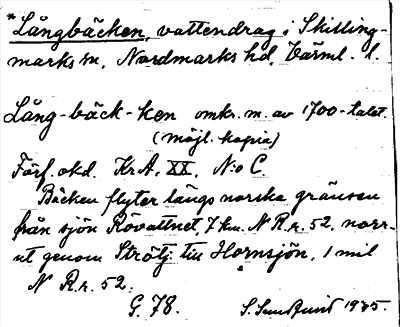 * Långbäcken, vattendrag i Skilling-
marks sn, Nordmarks hd, Värml. l.
Lång-bäck-ken omkr. m. av 1700-talet.
(möjl. kopia)
Förf. okd. KrA, XX, N:o C
Bäcken flyter längs norska gränsen
från sjön Rövattnet, 7 km N R.r. 52, norr-
ut genom Strötj. till Hornsjön, 1 mil
N R.r. 52.
G. 78. S. Sundquist 1935.